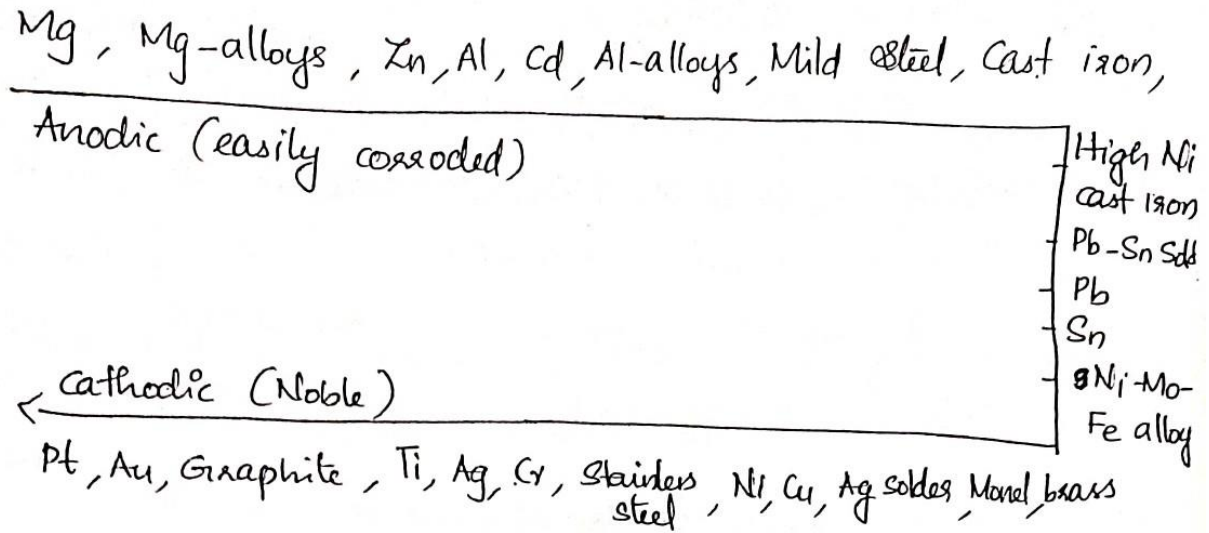 Mg, Mg-alloys, Zn, Al, Cd, Al-alloys, Mild Steel, Cast iron,
Anodic (easily corroded)
High Ni
cast iron
Pb-Sn Sold
Pb
Sn
Ni-Mo-
Fe alloy
Cathodic (Noble)
Pt, Au, Graphite, Ti, Ag, Cr, Stainless
steel, Ni, Cu, Ag solder, Monel, brass